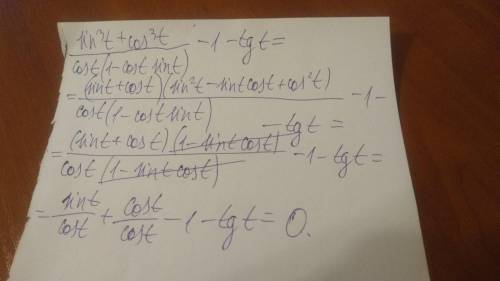 (sin³t + cos³t) / (cost(1 - cost sint)) - 1 - tg t =
= ((sint + cost)(sin²t - sint cost + cos²t)) / (cost(1 - cost sint)) - 1 -
- tg t =
= ((sint + cost)(1 - sint cost)) / (cost(1 - sint cost)) - 1 - tg t =
= sint / cost + cost / cost - 1 - tg t = 0.